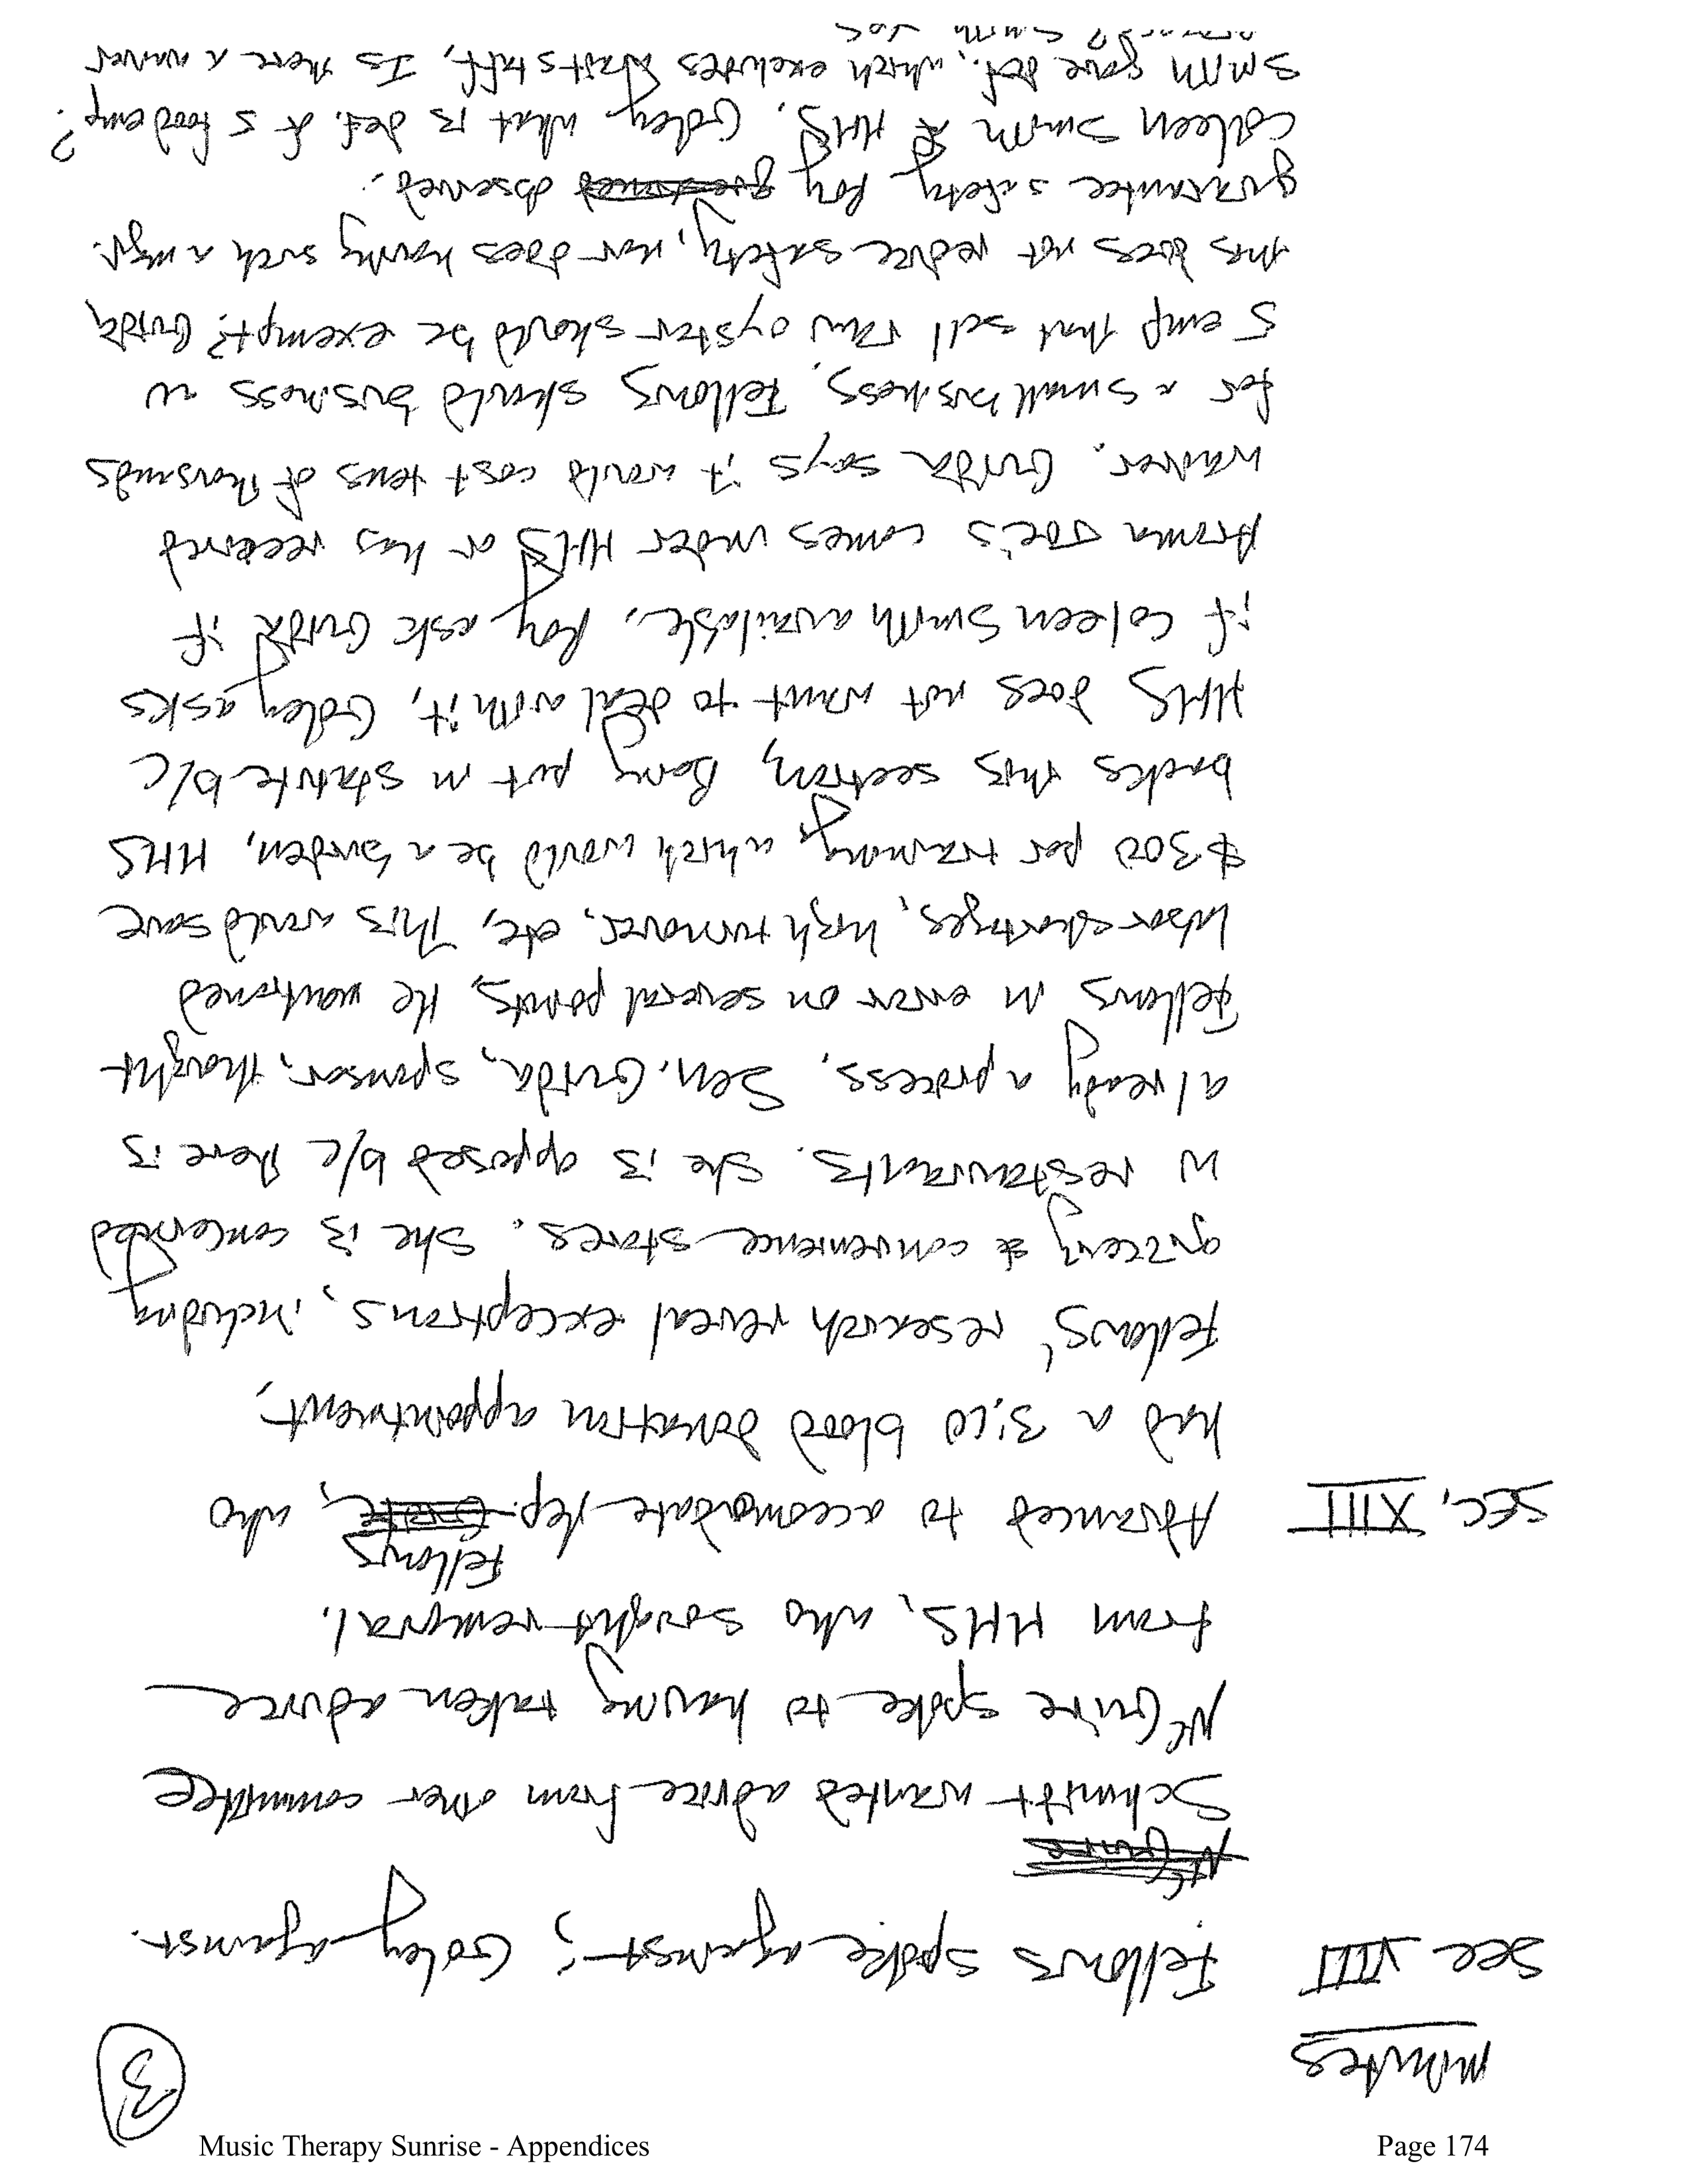 Minutes
3
Sec VIII Fellows spoke against; Goley against.
McGuire
Schmidt wanted advice from other committee
McGuire spoke to having taken advice
from HHS, who sought removal.
Fellows
Sec. XIII Advanced to accomodate Rep. , who
had a 3:10 blood donation appointment,
Fellows' research reveal exceptions, including
grocery & convenience stores. She is concerned
w restaurants. She is opposed b/c there is
already a process. Sen. Guida, sponsor, thought
Fellows in error on several points, He mentioned
labor shortages, high turnover, etc, This would save
$300 per training, which would be a burden, HHS
backs this section, Being put in statute b/c
HHS does not want to deal with it, Goley asks
if Coleen Smith available, Roy ask Guida if
Aroma Joe's comes under HHS or has received
waiver. Guida says it would cost tens of thousands
for a small business. Fellows should business w
5 emp that sell raw oyster should be exempt? Guida,
this does not reduce safety, nor does having such a mgr.
guarantee safety Roy observed.
Coleen Smith HHS. Goley what is def. of 5 food emp?
Smith gave def., which excludes waitstaff, Is there a waiver
Smith
Music Therapy Sunrise - Appendices
Page 174